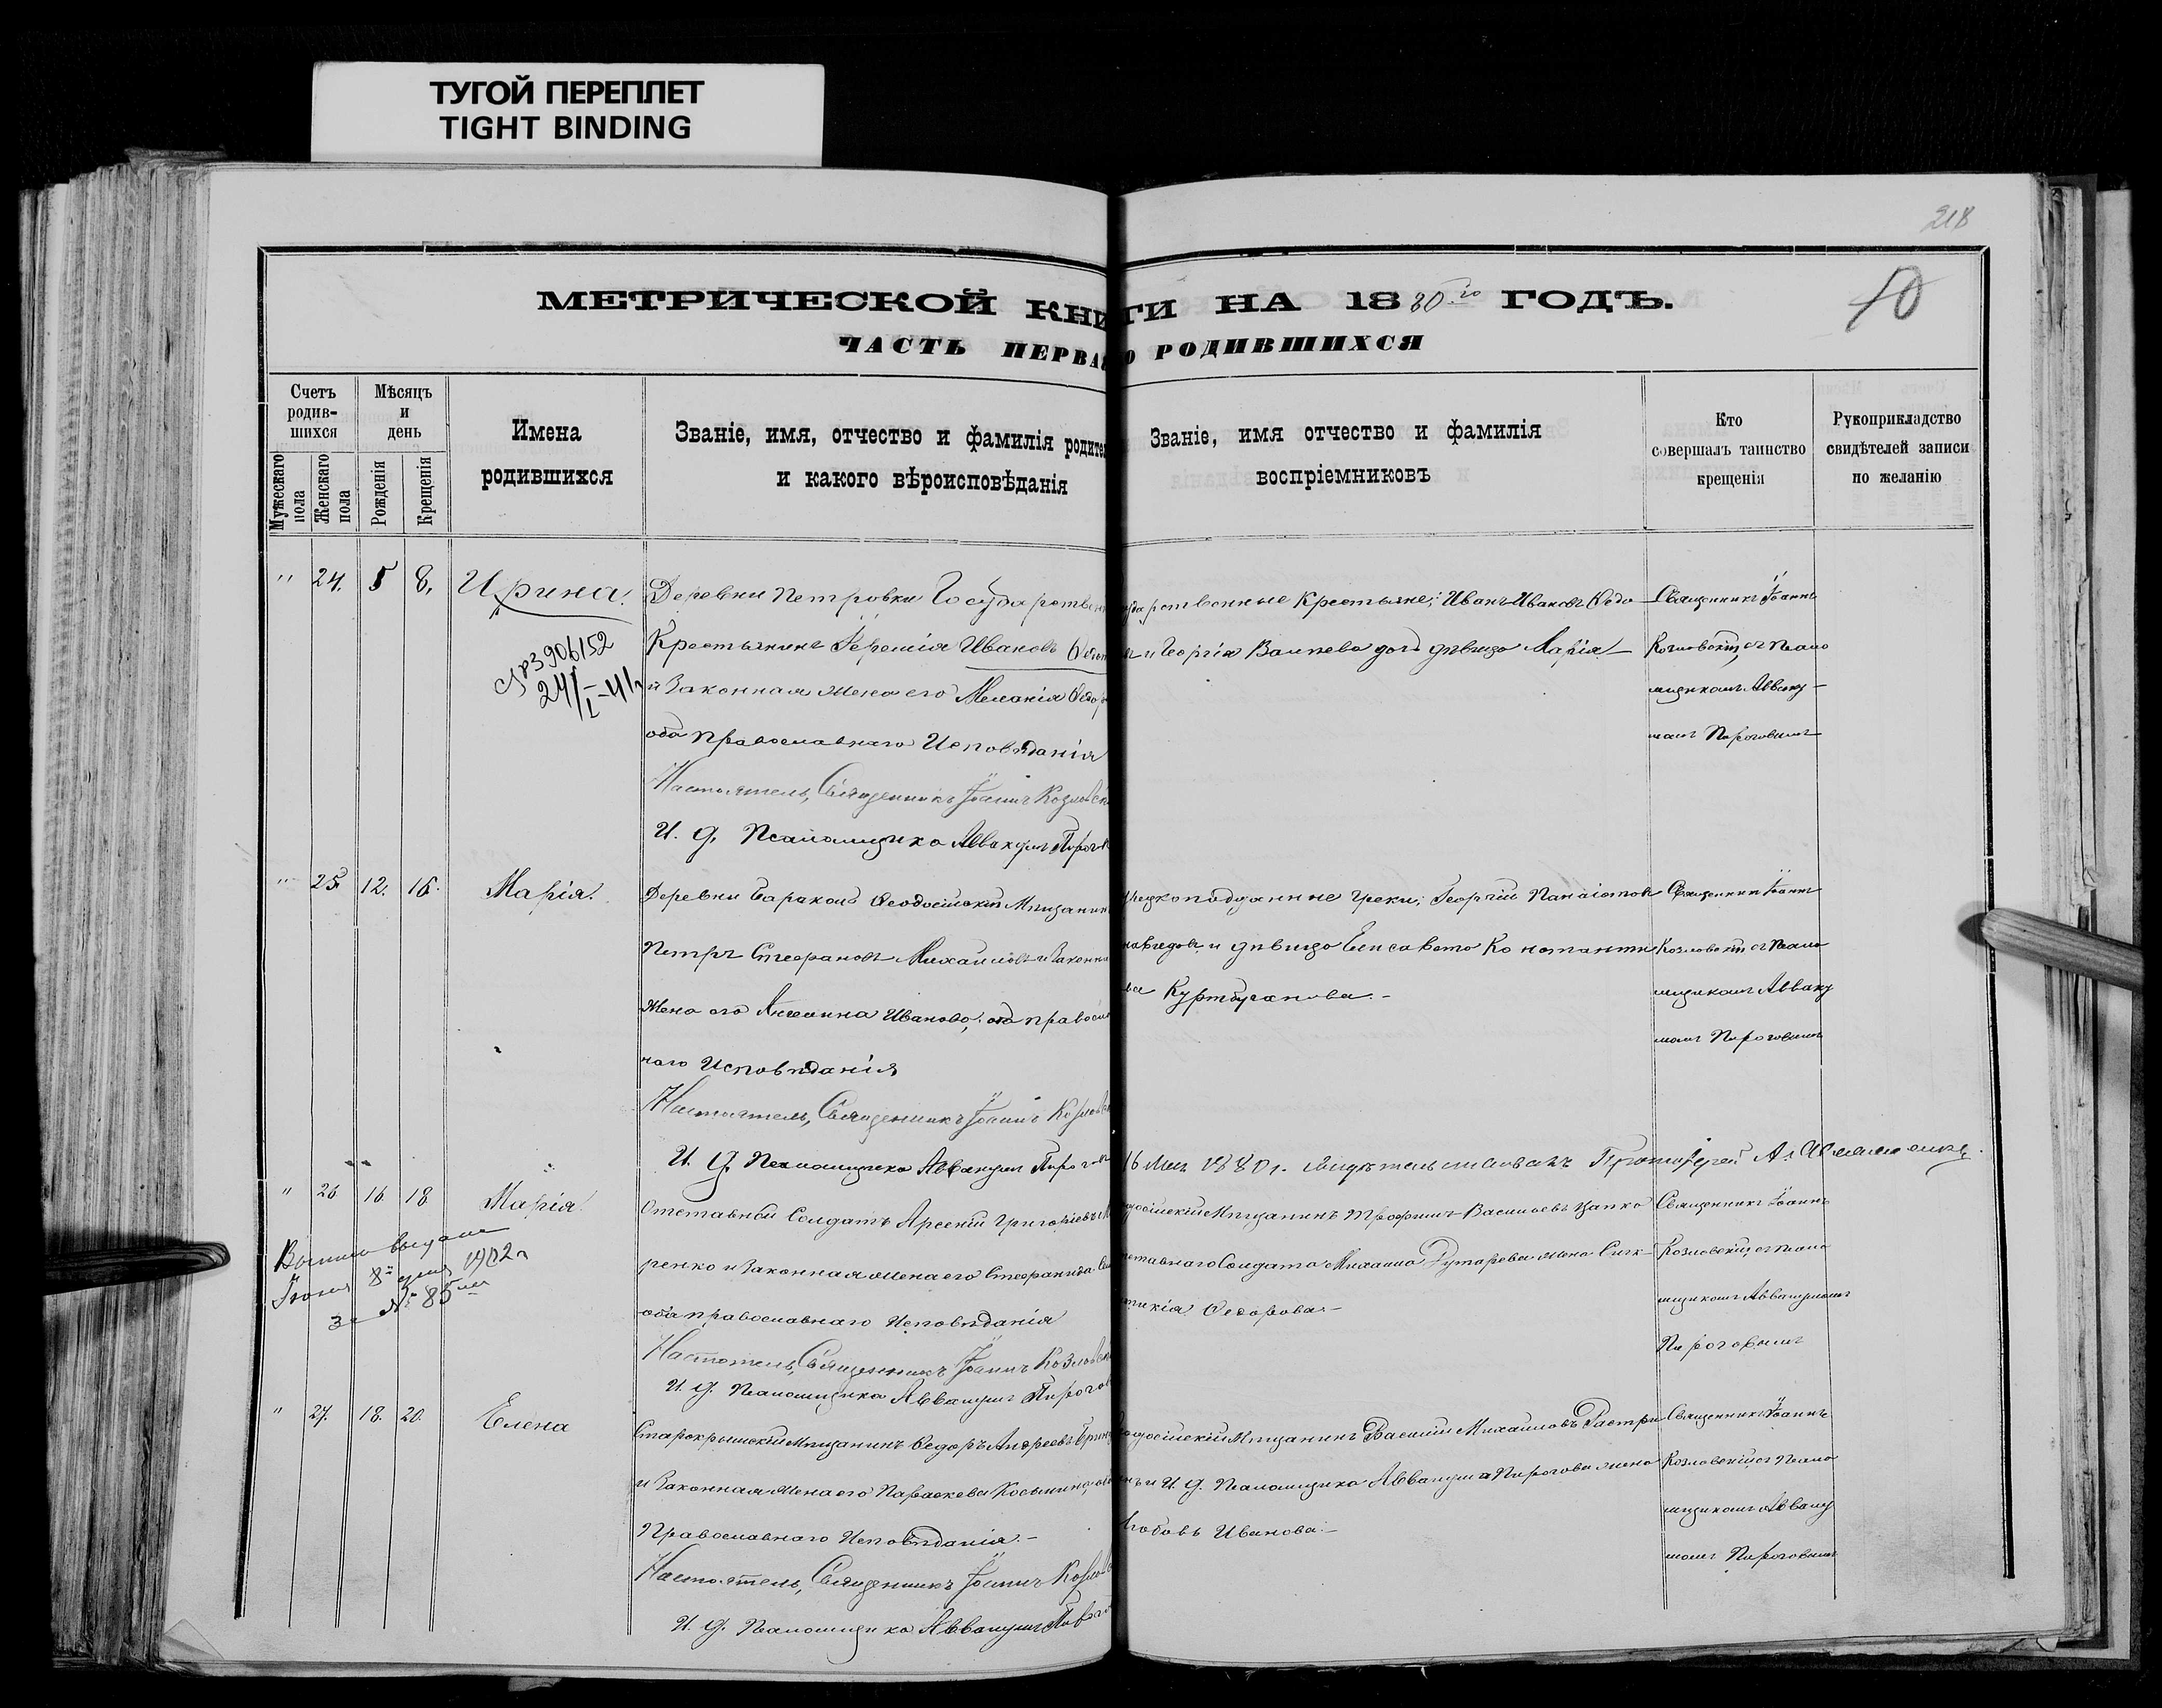 ТУГОЙ ПЕРЕПЛЕТ
TIGHT BINDING
218
10
МЕТРИЧЕСКОЙ КНИГИ НА 1880го ГОДЪ.
ЧАСТЬ ПЕРВАЯ О РОДИВШИХСЯ
Счетъ родив-шихся
Мужескаго пола
Женскаго пола
Мѣсяцъ и день
Рожденія
Крещенія
Имена родившихся
Званіе, имя, отчество и фамилія родител
и какого вѣроисповѣданія
Званіе, имя отчество и фамилія
воспріемниковъ
Кто
совершалъ таинство
крещенія
Рукоприкладство
свидѣтелей записи
по желанію
" 24. 5 8. Ирина.
906152
24/I-41
Деревни Петровки Государствен
Крестьянинъ Іеремія Ивановъ
и Законная жена его Меланія Ѳедор
оба православнаго Исповѣданія
Настоятель, Священникъ Іоаннъ Козловск
И. д. Псаломщика Аввакумъ Пирогов
ударственные Крестьяне; Иванъ Ивановъ
и Георгія дочь дѣвица Марія
Священникъ Іоаннъ
Козловскій, съ Псало
мщикомъ Авваку
момъ Пироговымъ
" 25. 12. 16. Марія.
Деревни Ѳеодосійскій Мѣщанин
Петръ Стефановъ Михайловъ и Законна
жена его Ангелина Иванова; оба правосла
наго Исповѣданія
Настоятель, Священникъ Іоаннъ Козловск
И. д. Псаломщика Аввакумъ Пирогов
Грекоподданные Греки; Георгій Панаіотовъ
и дѣвица Елисавета Константи
ва Куртбуганова.
Священникъ Іоаннъ
Козловскій съ Псало
мщикомъ Авваку
момъ Пироговымъ
16 1880 г. Протоіерей
" 26 16 18 Марія.
выдана
Іюня 8го дня 1902 г
за № 85
Отставной Солдатъ Арсеній Григоріевъ
ренко и Законная жена его Стефанида
оба православнаго Исповѣданія
Настоятель, Священникъ Іоаннъ Козловск
И. д. Псаломщика Аввакумъ Пирогов
одосійскій Мѣщанинъ Трофимъ Васильевъ Цапко
тставнаго Солдата Михаила жена
тикія Ѳедорова
Священникъ Іоаннъ
Козловскій, съ псало
мщикомъ Аввакумомъ
Пироговымъ
" 27. 18. 20. Елена
Старокрымскій Мѣщанинъ Ѳедоръ Андреевъ
и Законная жена его Параскева Косьмина,
Православнаго Исповѣданія.
Настоятель, Священникъ Іоаннъ Козлов
И. д. Псаломщика Аввакумъ Пирог
одосійскій Мѣщанинъ Василій Михайловъ
и И. д. Псаломщика Аввакума Пирогова жена
Любовь Иванова.
Священникъ Іоаннъ
Козловскій съ Псало
мщикомъ Авваку
момъ Пироговымъ